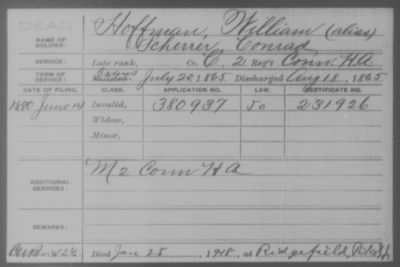 DEAD
Hoffman, William (alias)
NAME OF SOLDIER: Scherrer, Conrad
SERVICE: Late rank, Co. C, 2 Reg't Conn. H A
TERM OF SERVICE: Enlisted July 20, 1865 Discharged Aug 18, 1865
DATE OF FILING. CLASS. APPLICATION NO. LAW. CERTIFICATE NO.
1890 June 14 Invalid, 380937 50 231926
Widow,
Minor,
ADDITIONAL SERVICES: M 2 Conn H A
REMARKS:
Died Jan 25, 1918, at Ridgefield,